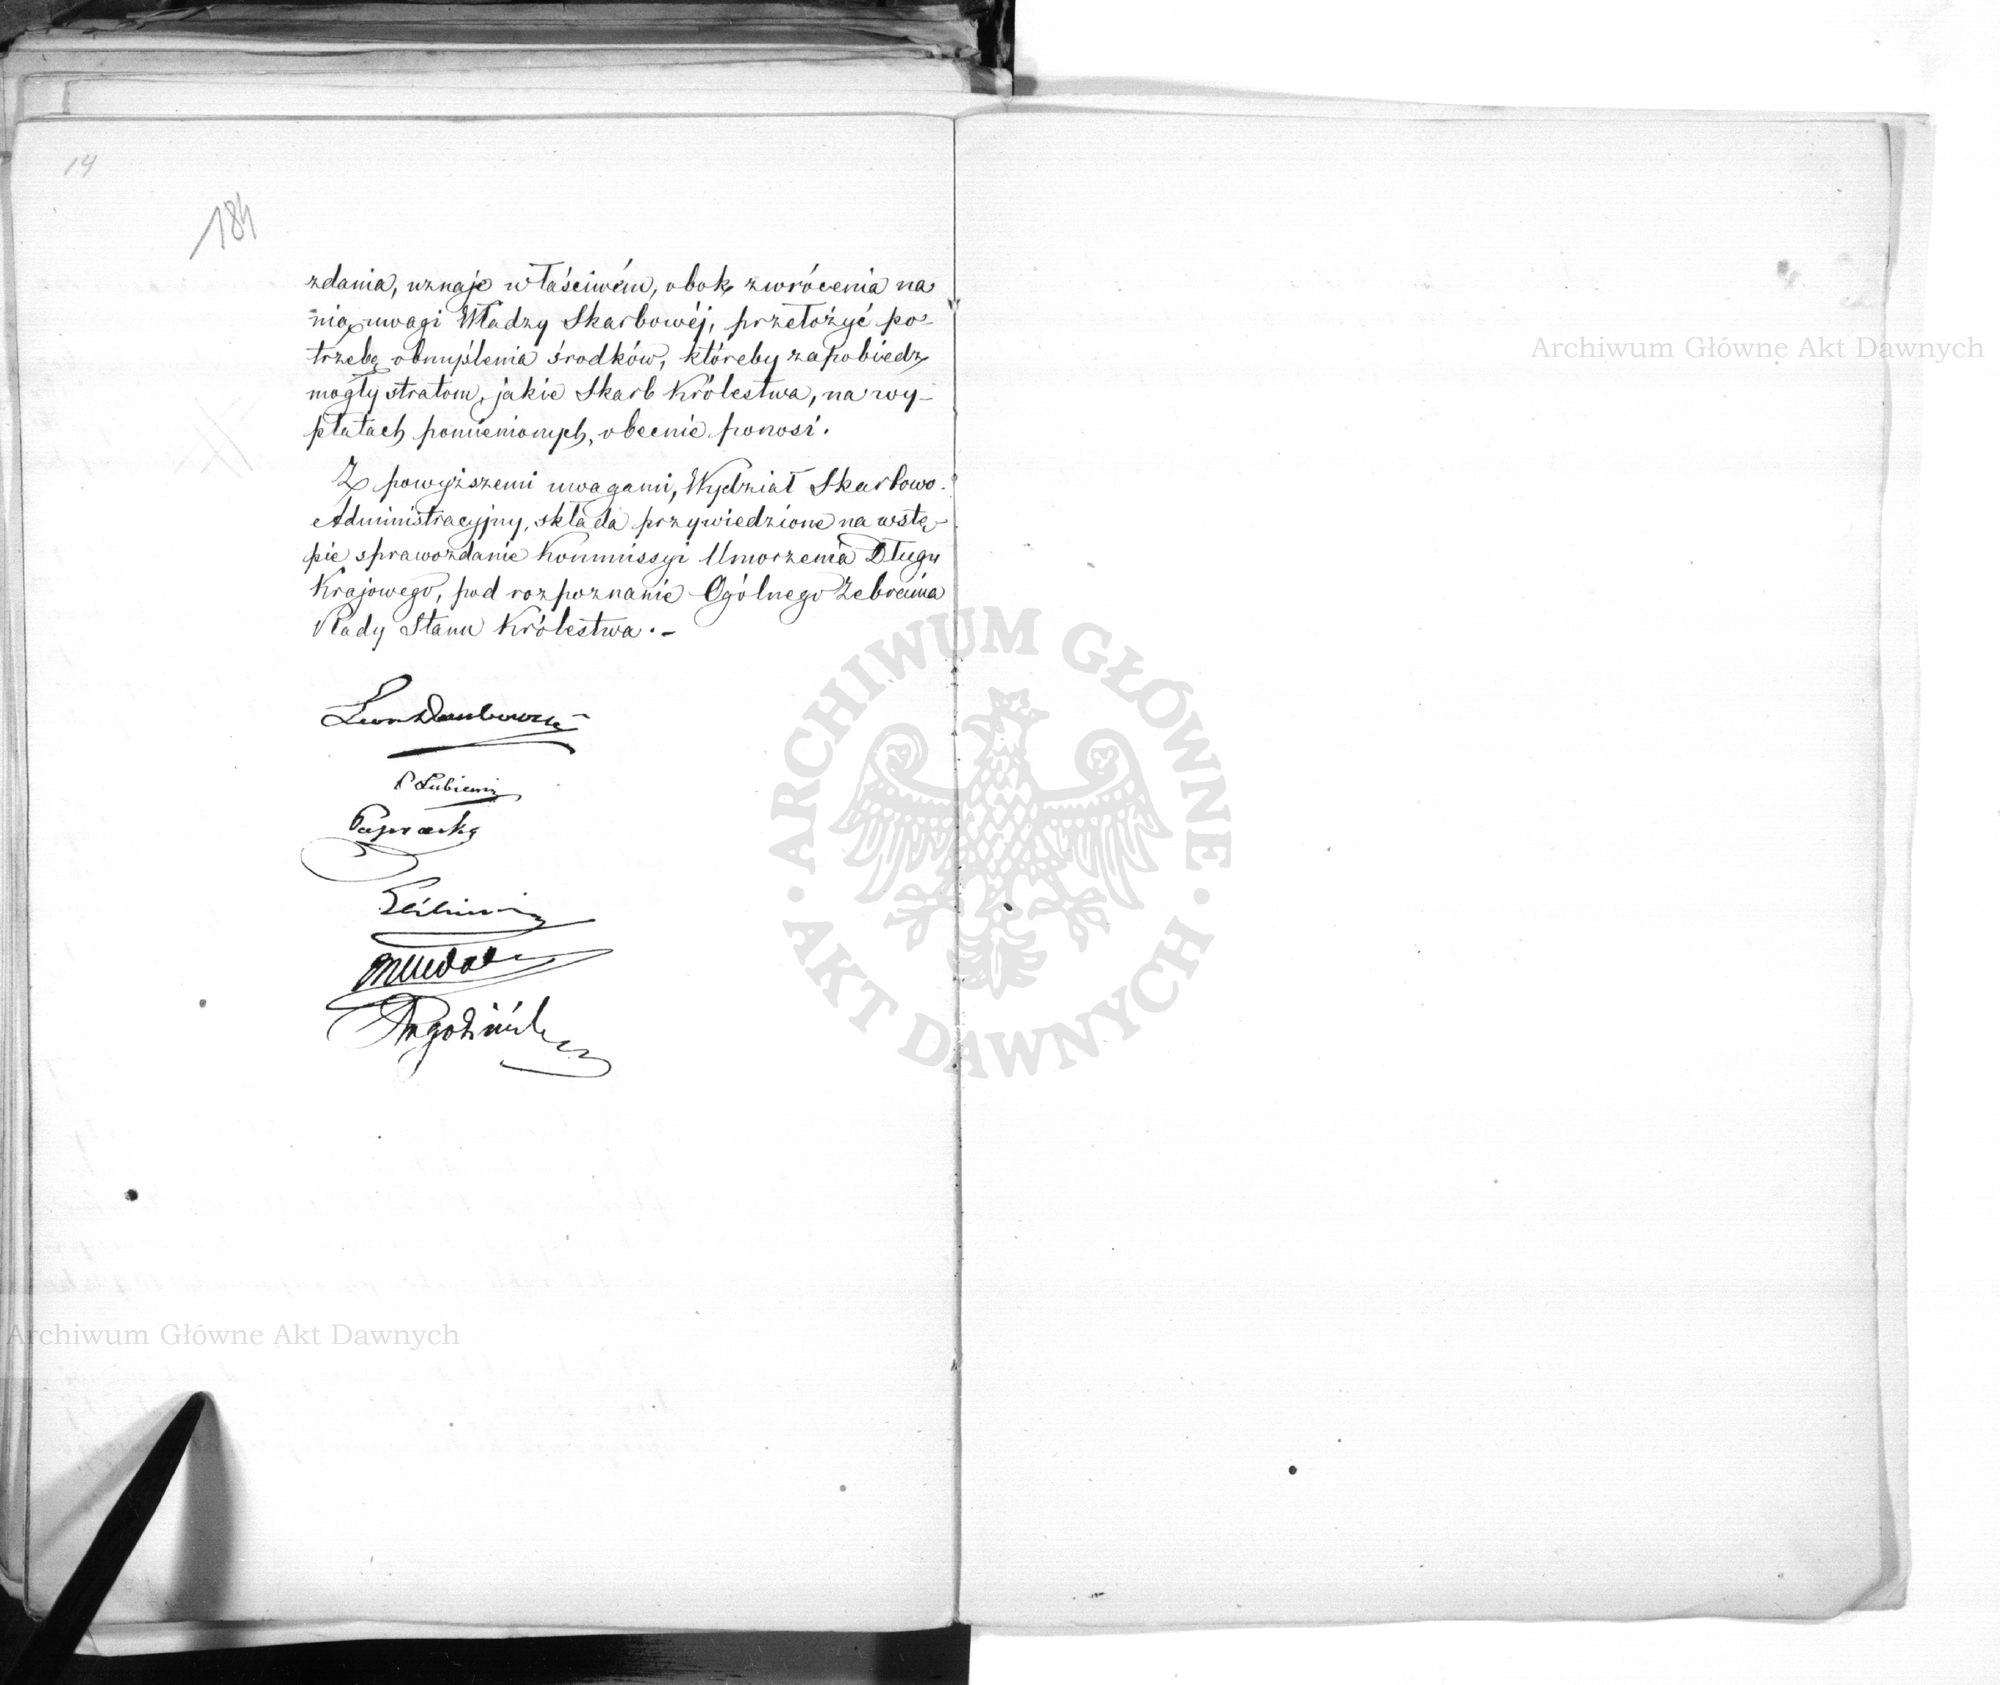 14
184
zdania, uznaje właściwém, obok zwrócenia na
nią uwagi Władzy Skarbowéj, przełożyć po-
trzebę obmyślenia środków, któreby zapobiedz
mogły stratom, jakie Skarb Królestwa, na wy-
płatach pomienionych, obecnie ponosi.
Z powyższemi uwagami, Wydział Skarbowo-
Administracyjny, składa przywiedzione na wstę-
pie sprawozdanie Kommissyi Umorzenia Długu
Krajowego, pod rozpoznanie Ogólnego Zebrania
Rady Stanu Królestwa.-
Leon Dembowski
Łubieński
Paprocki
Archiwum Główne Akt Dawnych
Archiwum Główne Akt Dawnych
ARCHIWUM GŁÓWNE
AKT DAWNYCH